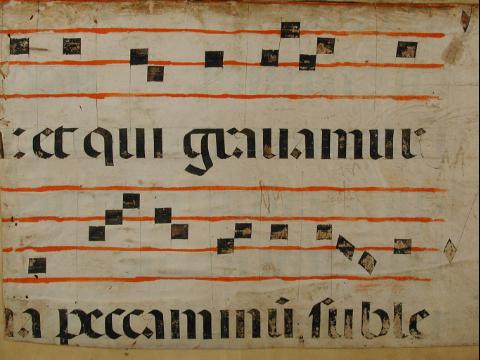 : et qui grauamur
na peccaminū suble